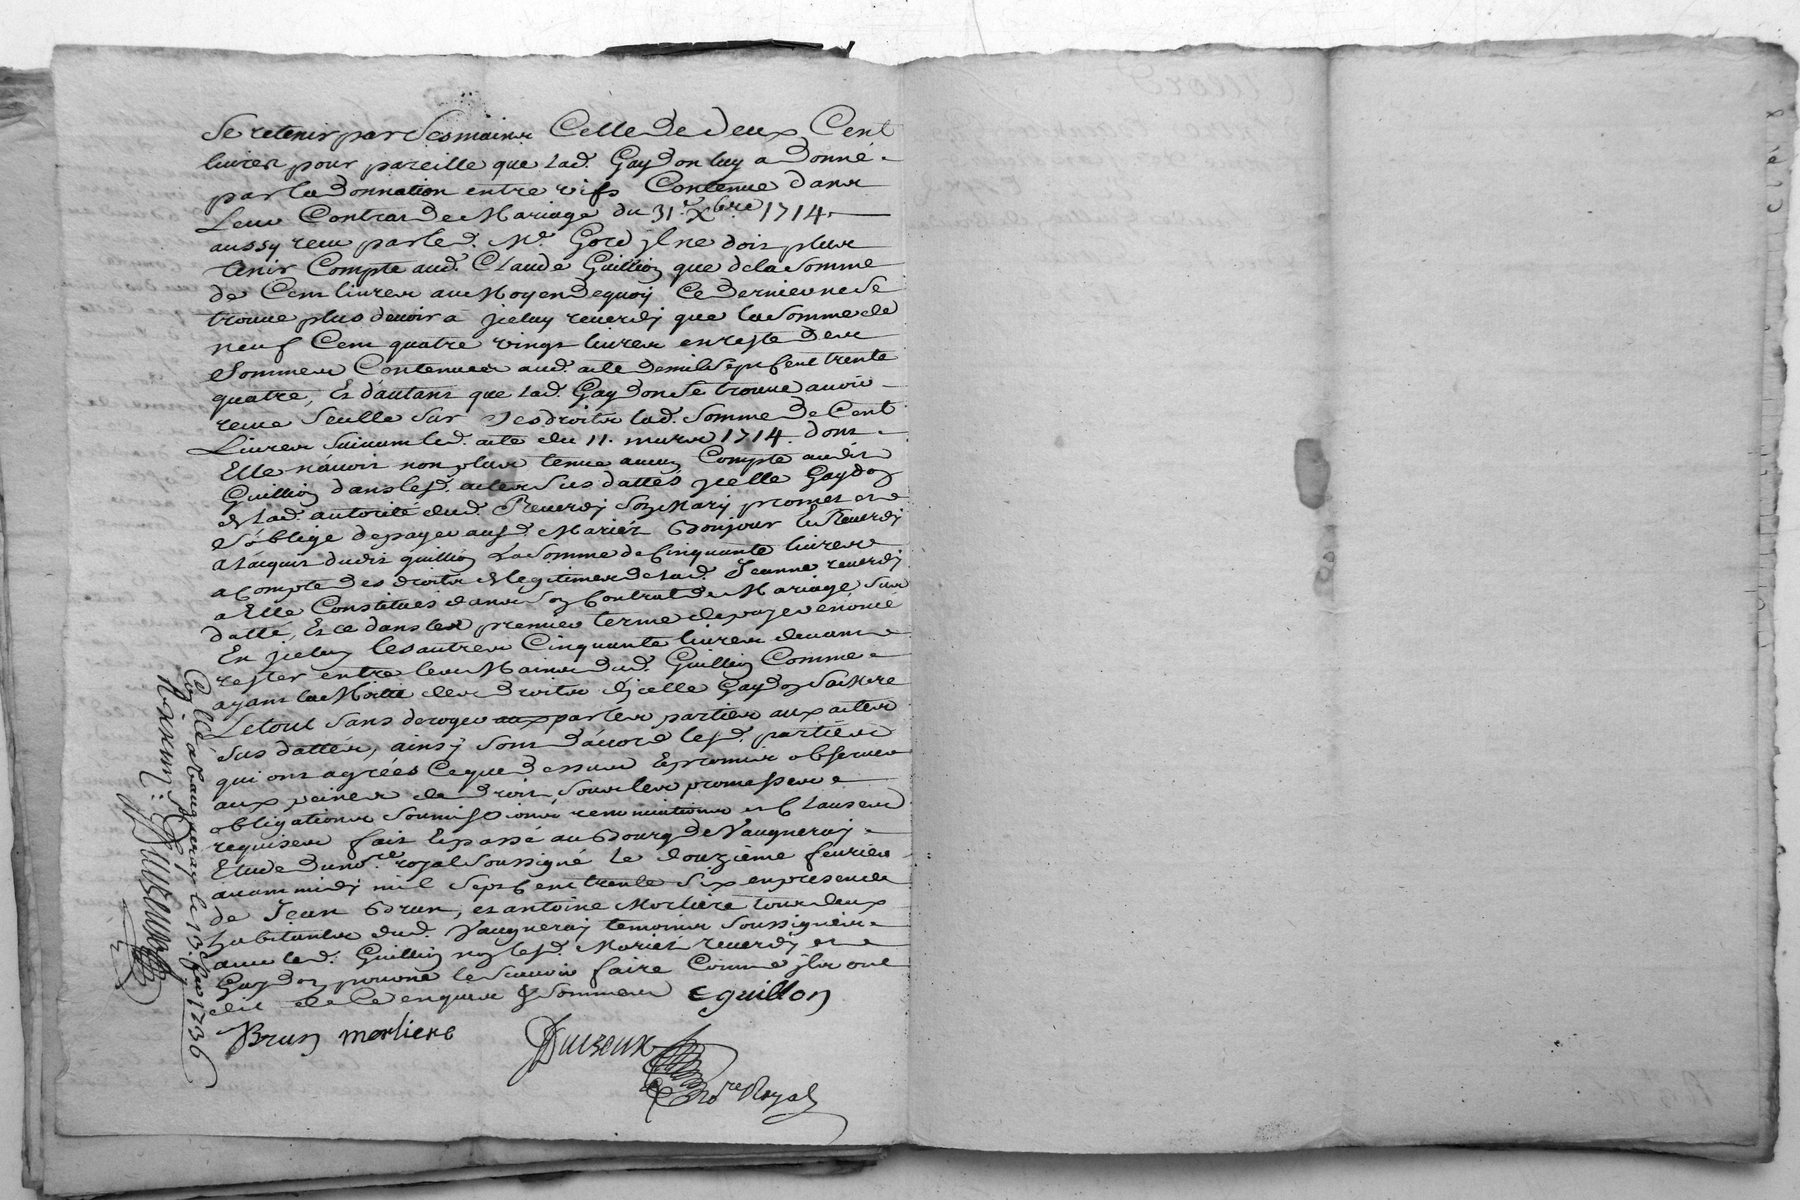 Se retenir par Ses mains Celle de deux Cent
livres pour pareille que lad. Gaydon luy a donné
par la donnation entre vifs Contenue dans
Leur Contrat de Mariage du 31.e Xbre 1714
aussy receu par led. Me. Gord jl ne doit plus
tenir Compte aud. Claude Guillion que de la Somme
de Cent livres au Moyen de quoy Ce dernier ne Se
trouve plus devoir a jceluy reverdy que la Somme de
neuf Cent quatre vingt livres en reste des
Sommes Contenues aud. acte de mil Sept Cent trente
quatre, Et d'autant que lad. Gaydon Se trouve avoir
receu Seulle Sur Ses droits lad. Somme de Cent
Livres Suivant led. acte du 11. mars 1714. dont
Elle n'avoit non plus tenu aucun Compte audit
Guillion dans lesd. actes Sus dattés jcelle Gaydon
de lad. autorité dud. Reverdy Son Mary promet et
S'oblige de payer ausd. Mariez Bonjour et Reverdy
a l'acquit dudit guillion La Somme de Cinquante livres
a Compte des droits et legitimes de lad. Jeanne reverdy
a Elle Constitués dans Son Contrat de Mariage Sus
datté, Et ce dans les premier terme de payer énoncé
En jceluy les autres Cinquante livres devant
rester entre les Mains dud. Guillion Comme
ayant la Moitié des droits d'jcelle Gaydon Sa Mere
Le tout Sans deroger aux par les parties aux actes
Sus dattés, ainsy Sont d'accord lesd. parties
qui ont agréés Ce que dessus Et promis observer
aux peines de droit Sous les promesses
obligations Soumissions renonciations et Clauses
requises fait Et passé au Bourg de Vaugneray
Etude du nore. royal Soussigné le douzième fevrier
avant midy mil Sept Cent trente Six en presence
de Jean Brun, et antoine Morliere tous deux
habitants dud. Vaugneray temoins Soussignéz
avec led. Guillion non lesd. Mariez reverdy et
Gaydon pour ne le Scavoir faire Comme jls ont
dit de Ce enquis & Sommez C guillon
Brun morliere
Duizeux
Nore Royal
Collé a Vaugneray le 13. fev 1736